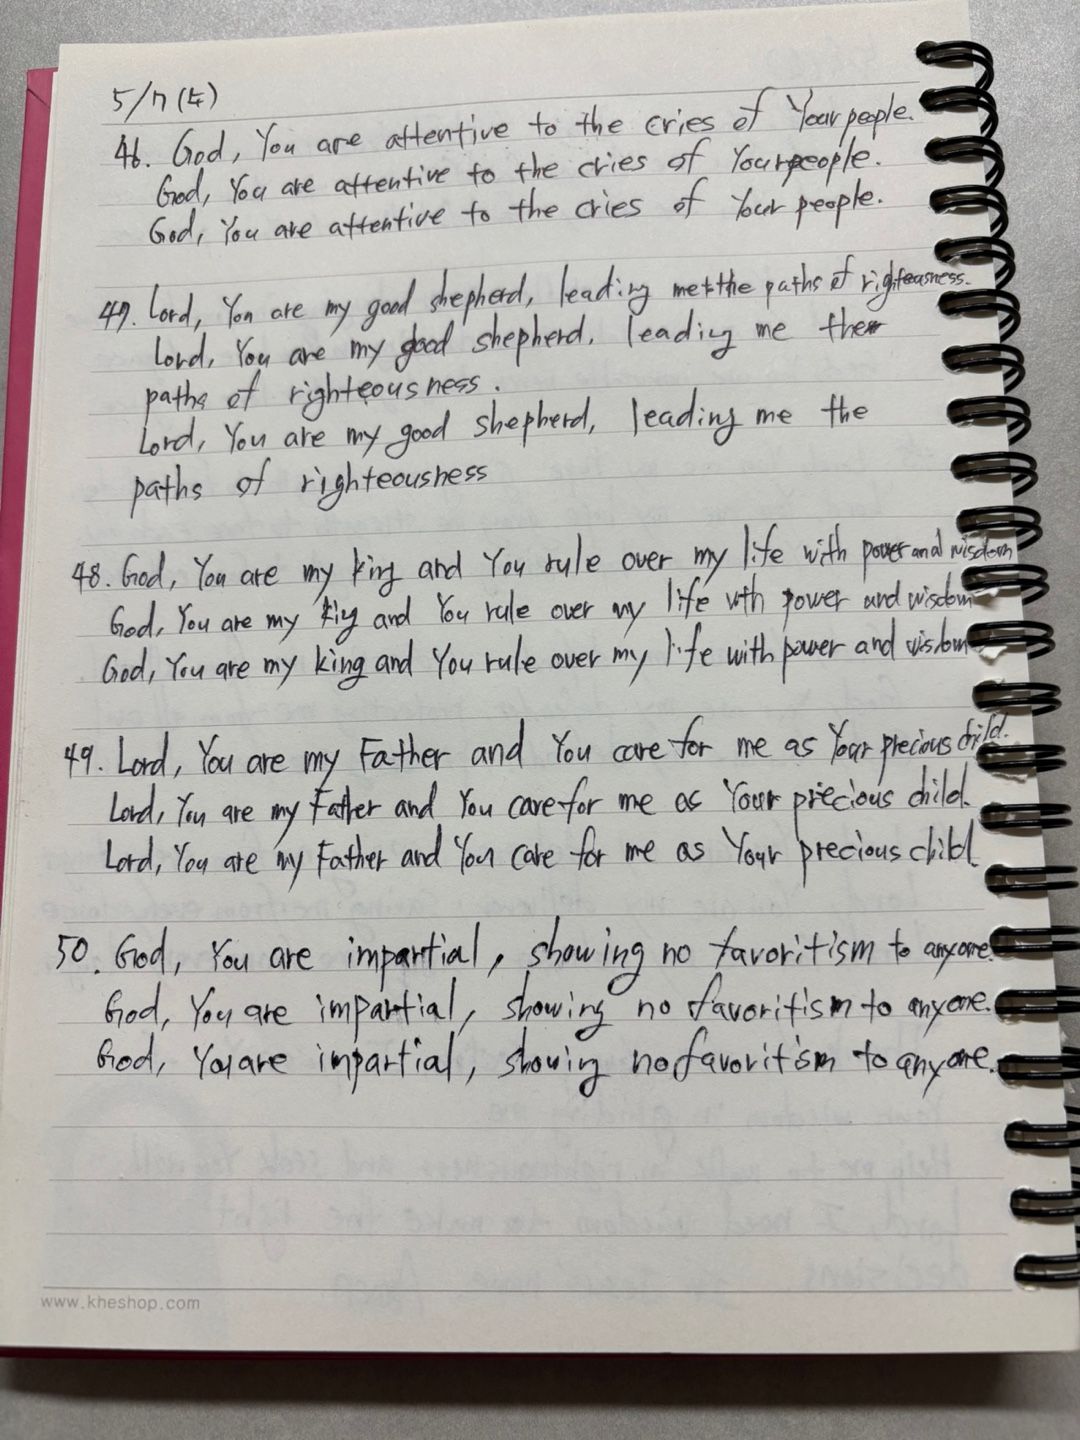 5/7 (토)
46. God, You are attentive to the cries of Your people.
God, You are attentive to the cries of Your people.
God, You are attentive to the cries of Your people.
47. Lord, You are my good shepherd, leading me the paths of righteousness.
Lord, You are my good shepherd, leading me the
paths of righteousness.
Lord, You are my good shepherd, leading me the
paths of righteousness
48. God, You are my king and You rule over my life with power and wisdom
God, You are my king and You rule over my life with power and wisdom
God, You are my king and You rule over my life with power and wisdom
49. Lord, You are my Father and You care for me as Your precious child.
Lord, You are my Father and You care for me as Your precious child.
Lord, You are my Father and You care for me as Your precious child.
50. God, You are impartial, showing no favoritism to anyone.
God, You are impartial, showing no favoritism to anyone.
God, You are impartial, showing no favoritism to anyone.
www.kheshop.com